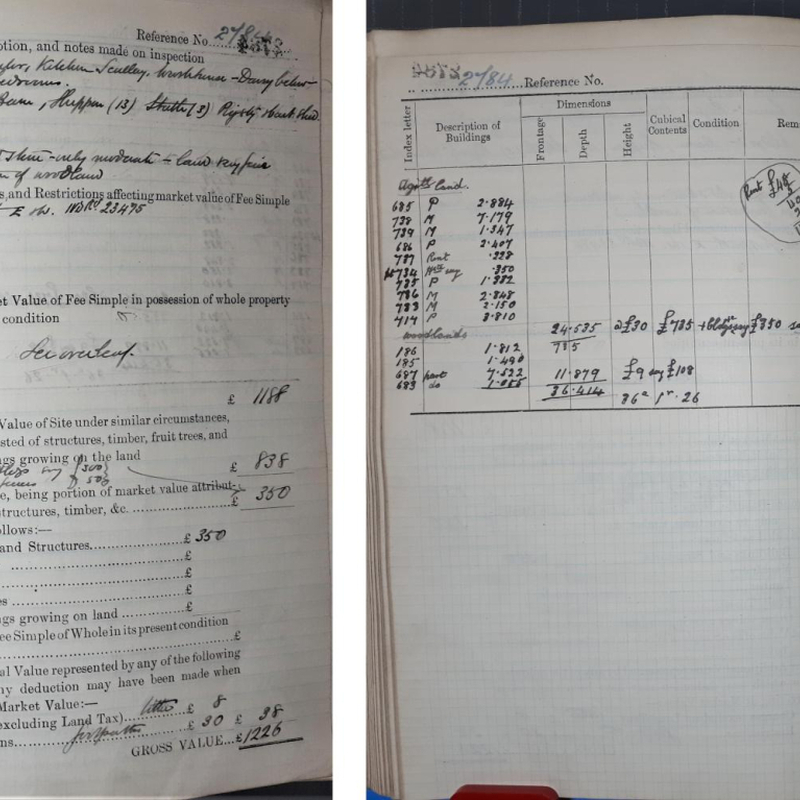 Reference No. 2/84
ption, and notes made on inspection
Kitchen Scullery, washhouse - Dairy below -
edrooms.
Barn, (13) (3)
only moderate - land very fair
of woodland
s, and Restrictions affecting market value of Fee Simple
23475
et Value of Fee Simple in possession of whole property
condition
See overleaf.
£ 1188
Value of Site under similar circumstances,
sted of structures, timber, fruit trees, and
ngs growing on the land
£ 838
say 300
50
e, being portion of market value attribut-
structures, timber, &c. £ 350
ollows:—
and Structures £ 350
£
£
es £
ngs growing on land £
ee Simple of Whole in its present condition
£
al Value represented by any of the following
ny deduction may have been made when
Market Value:—
excluding Land Tax) tithe £ 8
ns £ 30 £ 38
GROSS VALUE...£ 1226
2/84 Reference No.
Index letter
Description of Buildings
Dimensions
Frontage
Depth
Height
Cubical Contents
Condition
Rema
Rent £48
Agric land.
685 P 2.884
738 M 7.179
739 M 1.347
686 P 2.407
737 .228
734 .350
735 P 1.382
736 M 2.848
733 M 2.150
414 P 3.810
24.535 @ £30 £735 + bldgs say £350
735
woodlands
186 1.812
185 1.490
687 part 7.522 11.879 £9 say £108
683 do 1.055 36.414 36a 1r. 26